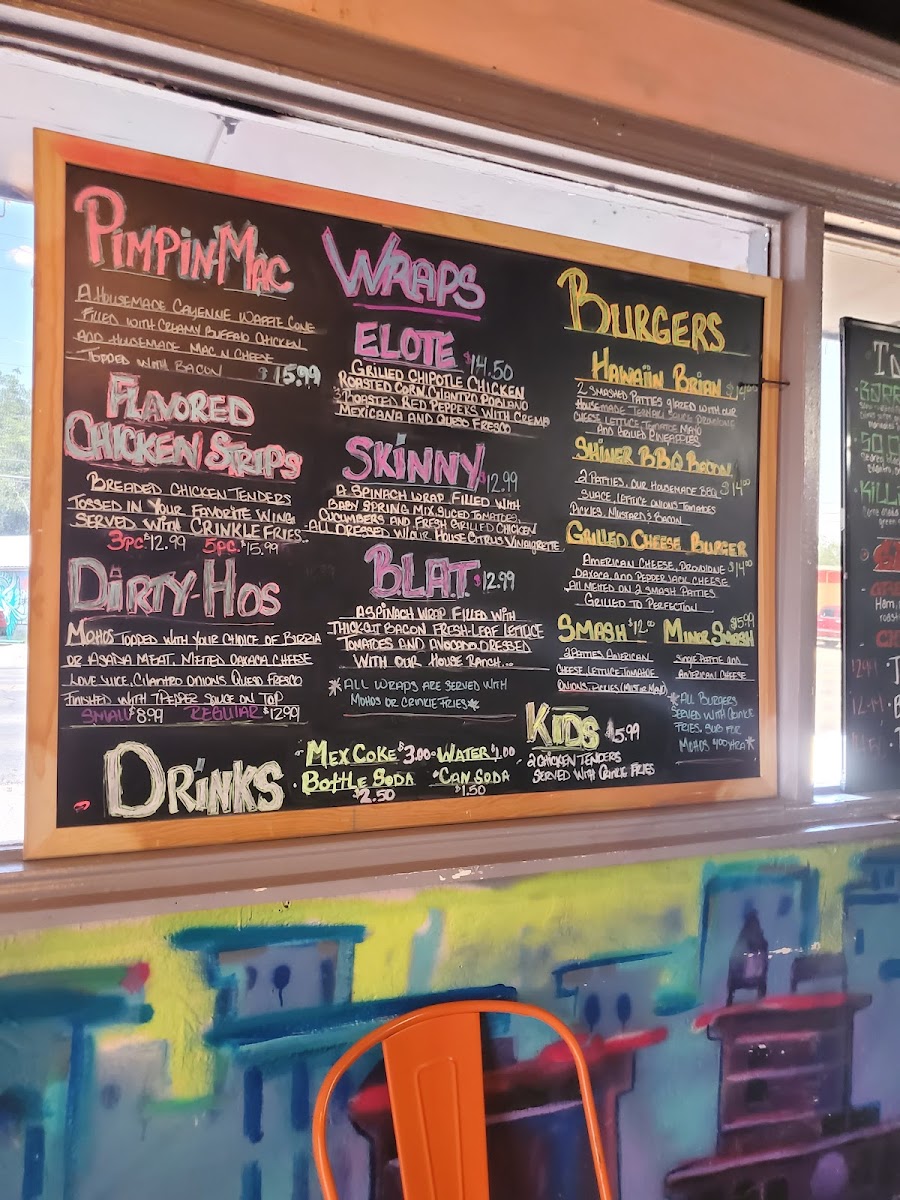 PIMPIN-MAC
A HOUSEMADE CAYENNE WAFFLE CONE
FILLED WITH CREAMY BUFFALO CHICKEN
AND HOUSEMADE MAC N CHEESE
TOPPED WITH BACON $15.99
FLAVORED
CHICKEN STRIPS
BREADED CHICKEN TENDERS
TOSSED IN YOUR FAVORITE WING
SERVED WITH CRINKLE FRIES.
3PC. $12.99 5PC. $15.99
DIRTY-HOS
MOHOS TOPPED WITH YOUR CHOICE OF BIRRIA
OR ASADA MEAT. MELTED OAXACA CHEESE
LOVE JUICE, CILANTRO ONIONS QUESO FRESCO
FINISHED WITH 7 PEPPER SAUCE ON TOP
SMALL $8.99 REGULAR $12.99
WRAPS
ELOTE $14.50
GRILLED CHIPOTLE CHICKEN
ROASTED CORN, CILANTRO POBLANO
& ROASTED RED PEPPERS WITH CREMA
MEXICANA AND QUESO FRESCO
SKINNY $12.99
A SPINACH WRAP FILLED WITH
BABY SPRING MIX, SLICED TOMATOES,
CUCUMBERS AND FRESH GRILLED CHICKEN
ALL DRESSED W/OUR HOUSE CITRUS VINAIGRETTE
B.L.A.T. $12.99
A SPINACH WRAP FILLED WITH
THICK CUT BACON FRESH-LEAF LETTUCE
TOMATOES AND AVOCADO. DRESSED
WITH OUR HOUSE RANCH...
*ALL WRAPS ARE SERVED WITH
MOHOS OR CRINKLE FRIES*
BURGERS
HAWAIIN BRIAN $14.00
2 SMASHED PATTIES GLAZED WITH OUR
HOUSEMADE TERIYAKI SAUCE PROVOLONE
CHEESE LETTUCE-TOMATOE MAYO
AND GRILLED PINEAPPLES
SHINER BBQ BACON $14.00
2 PATTIES, OUR HOUSEMADE BBQ
SAUCE, LETTUCE ONIONS TOMATOES
PICKLES, MUSTARD & BACON
GRILLED CHEESE BURGER
AMERICAN CHEESE, PROVOLONE $14.00
OAXACA, AND PEPPER JACK CHEESE
ALL MELTED ON 2 SMASH PATTIES
GRILLED TO PERFECTION
SMASH $12.00
2 PATTIES AMERICAN
CHEESE, LETTUCE-TOMATOE
ONIONS, PICKLES (MUST OR MAYO)
MINOR SMASH $15.99
SINGLE PATTIE AND
AMERICAN CHEESE
*ALL BURGERS
SERVED WITH CRINKLE
FRIES. SUB FOR
MOHOS
KIDS $5.99
2 CHICKEN TENDERS
SERVED WITH CRINKLE FRIES
DRINKS
MEX COKE $3.00 WATER $1.00
BOTTLE SODA $2.50
CAN SODA $1.50
KILL
Ham,